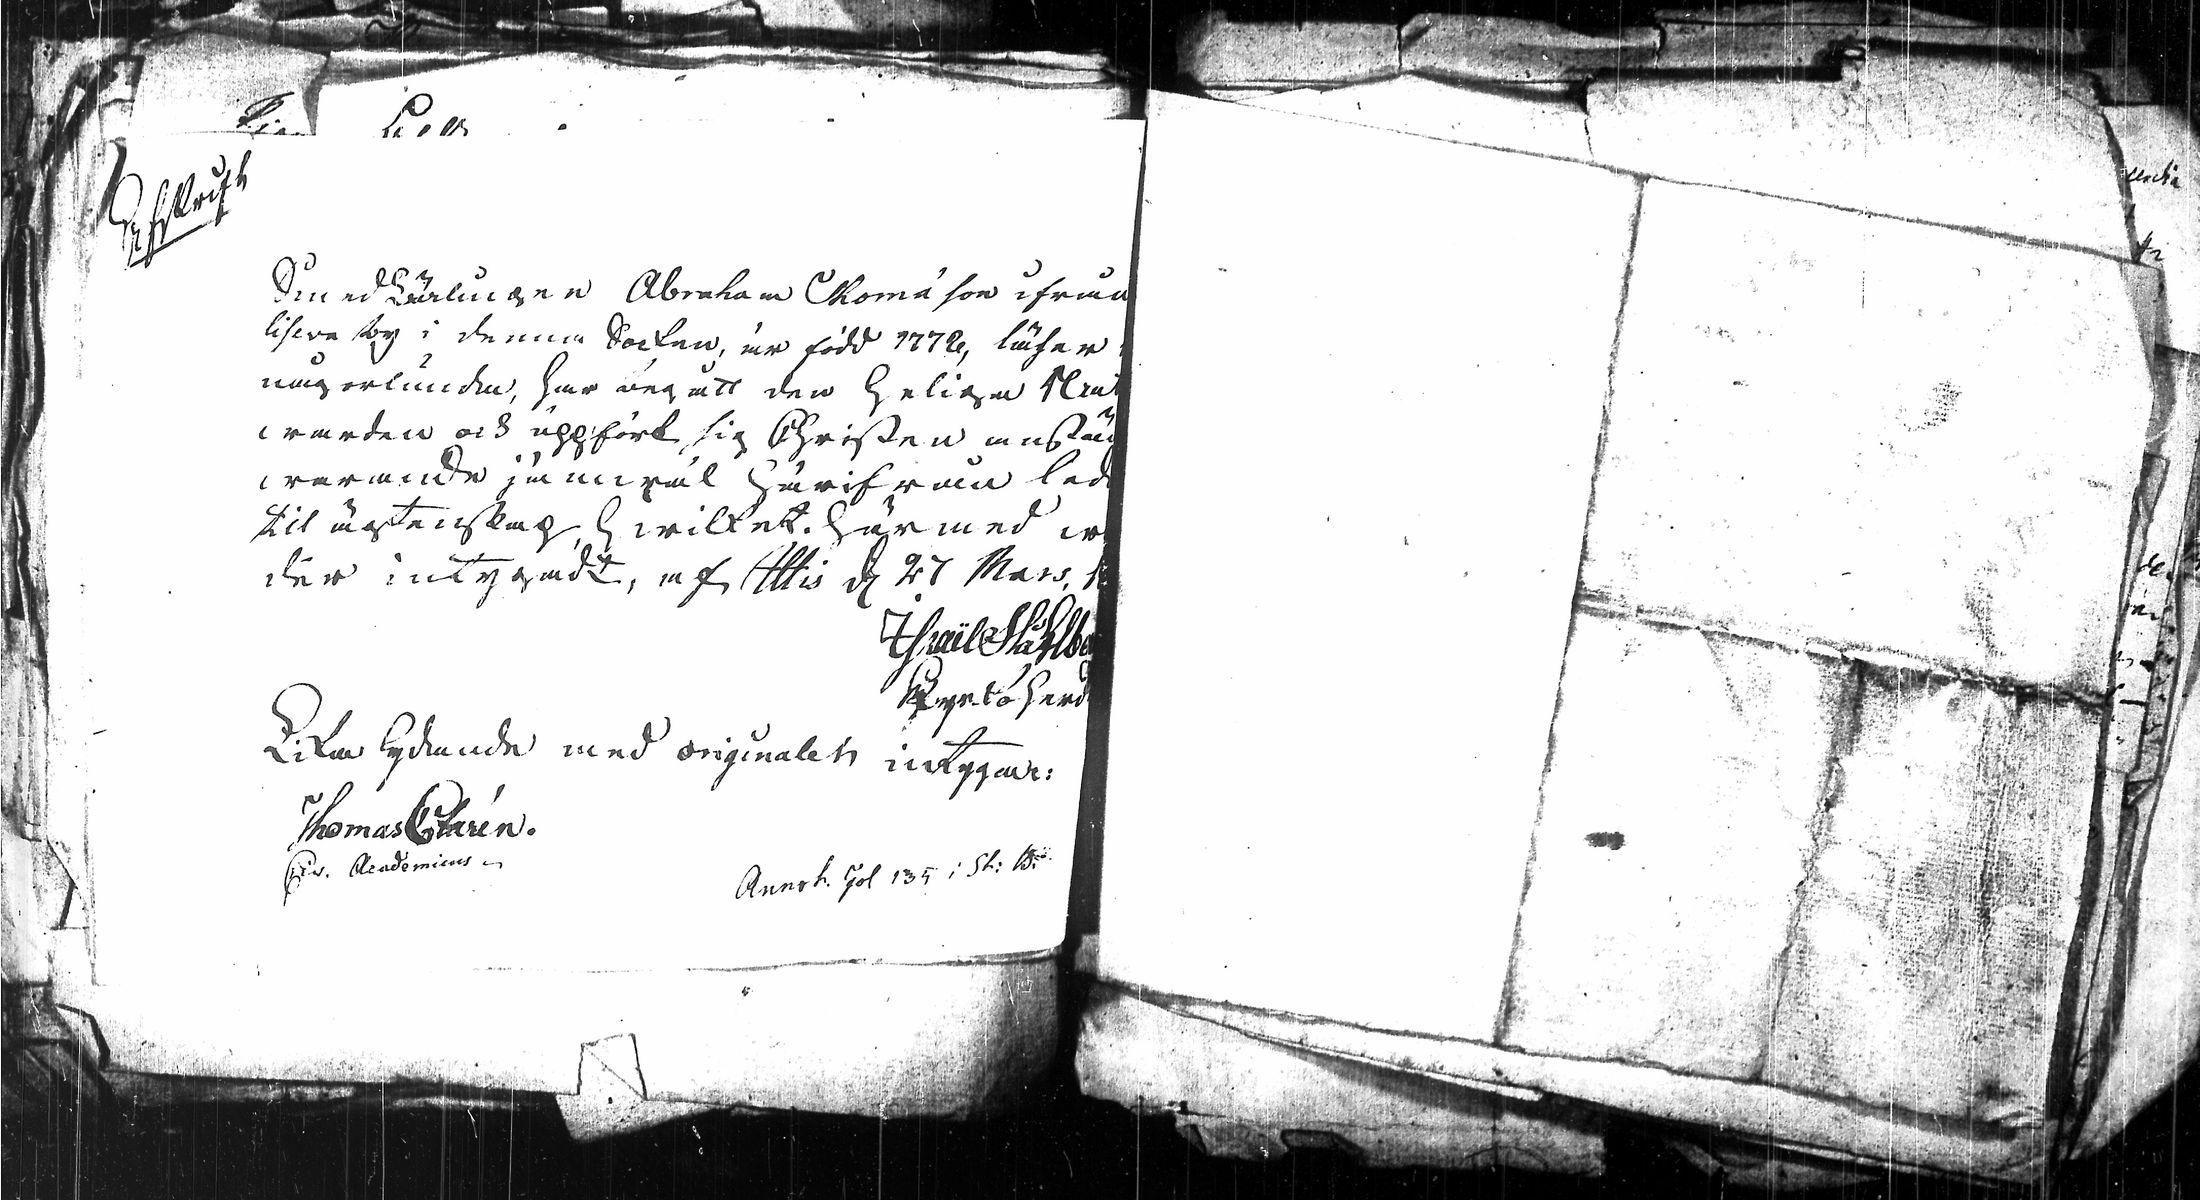 Afskrift
Smed Lärlingen Abraham Thomasson ifrån
by i denna Socken, är född 1772, läser
någorlunda, har begått den Heliga Natt
warden och uppfört sig Christen anstän
warande jemwäl härifrån led
til ägtenskap, hwilket härmed w
der intygadt, af Attis d 27 Mars,
Israël Ståhlbe
Kyrkoherd
Lika lydande med originalet intygar:
Thomas Clarén.
Civ. Academicus
Annot. Fol 135 i St: B: